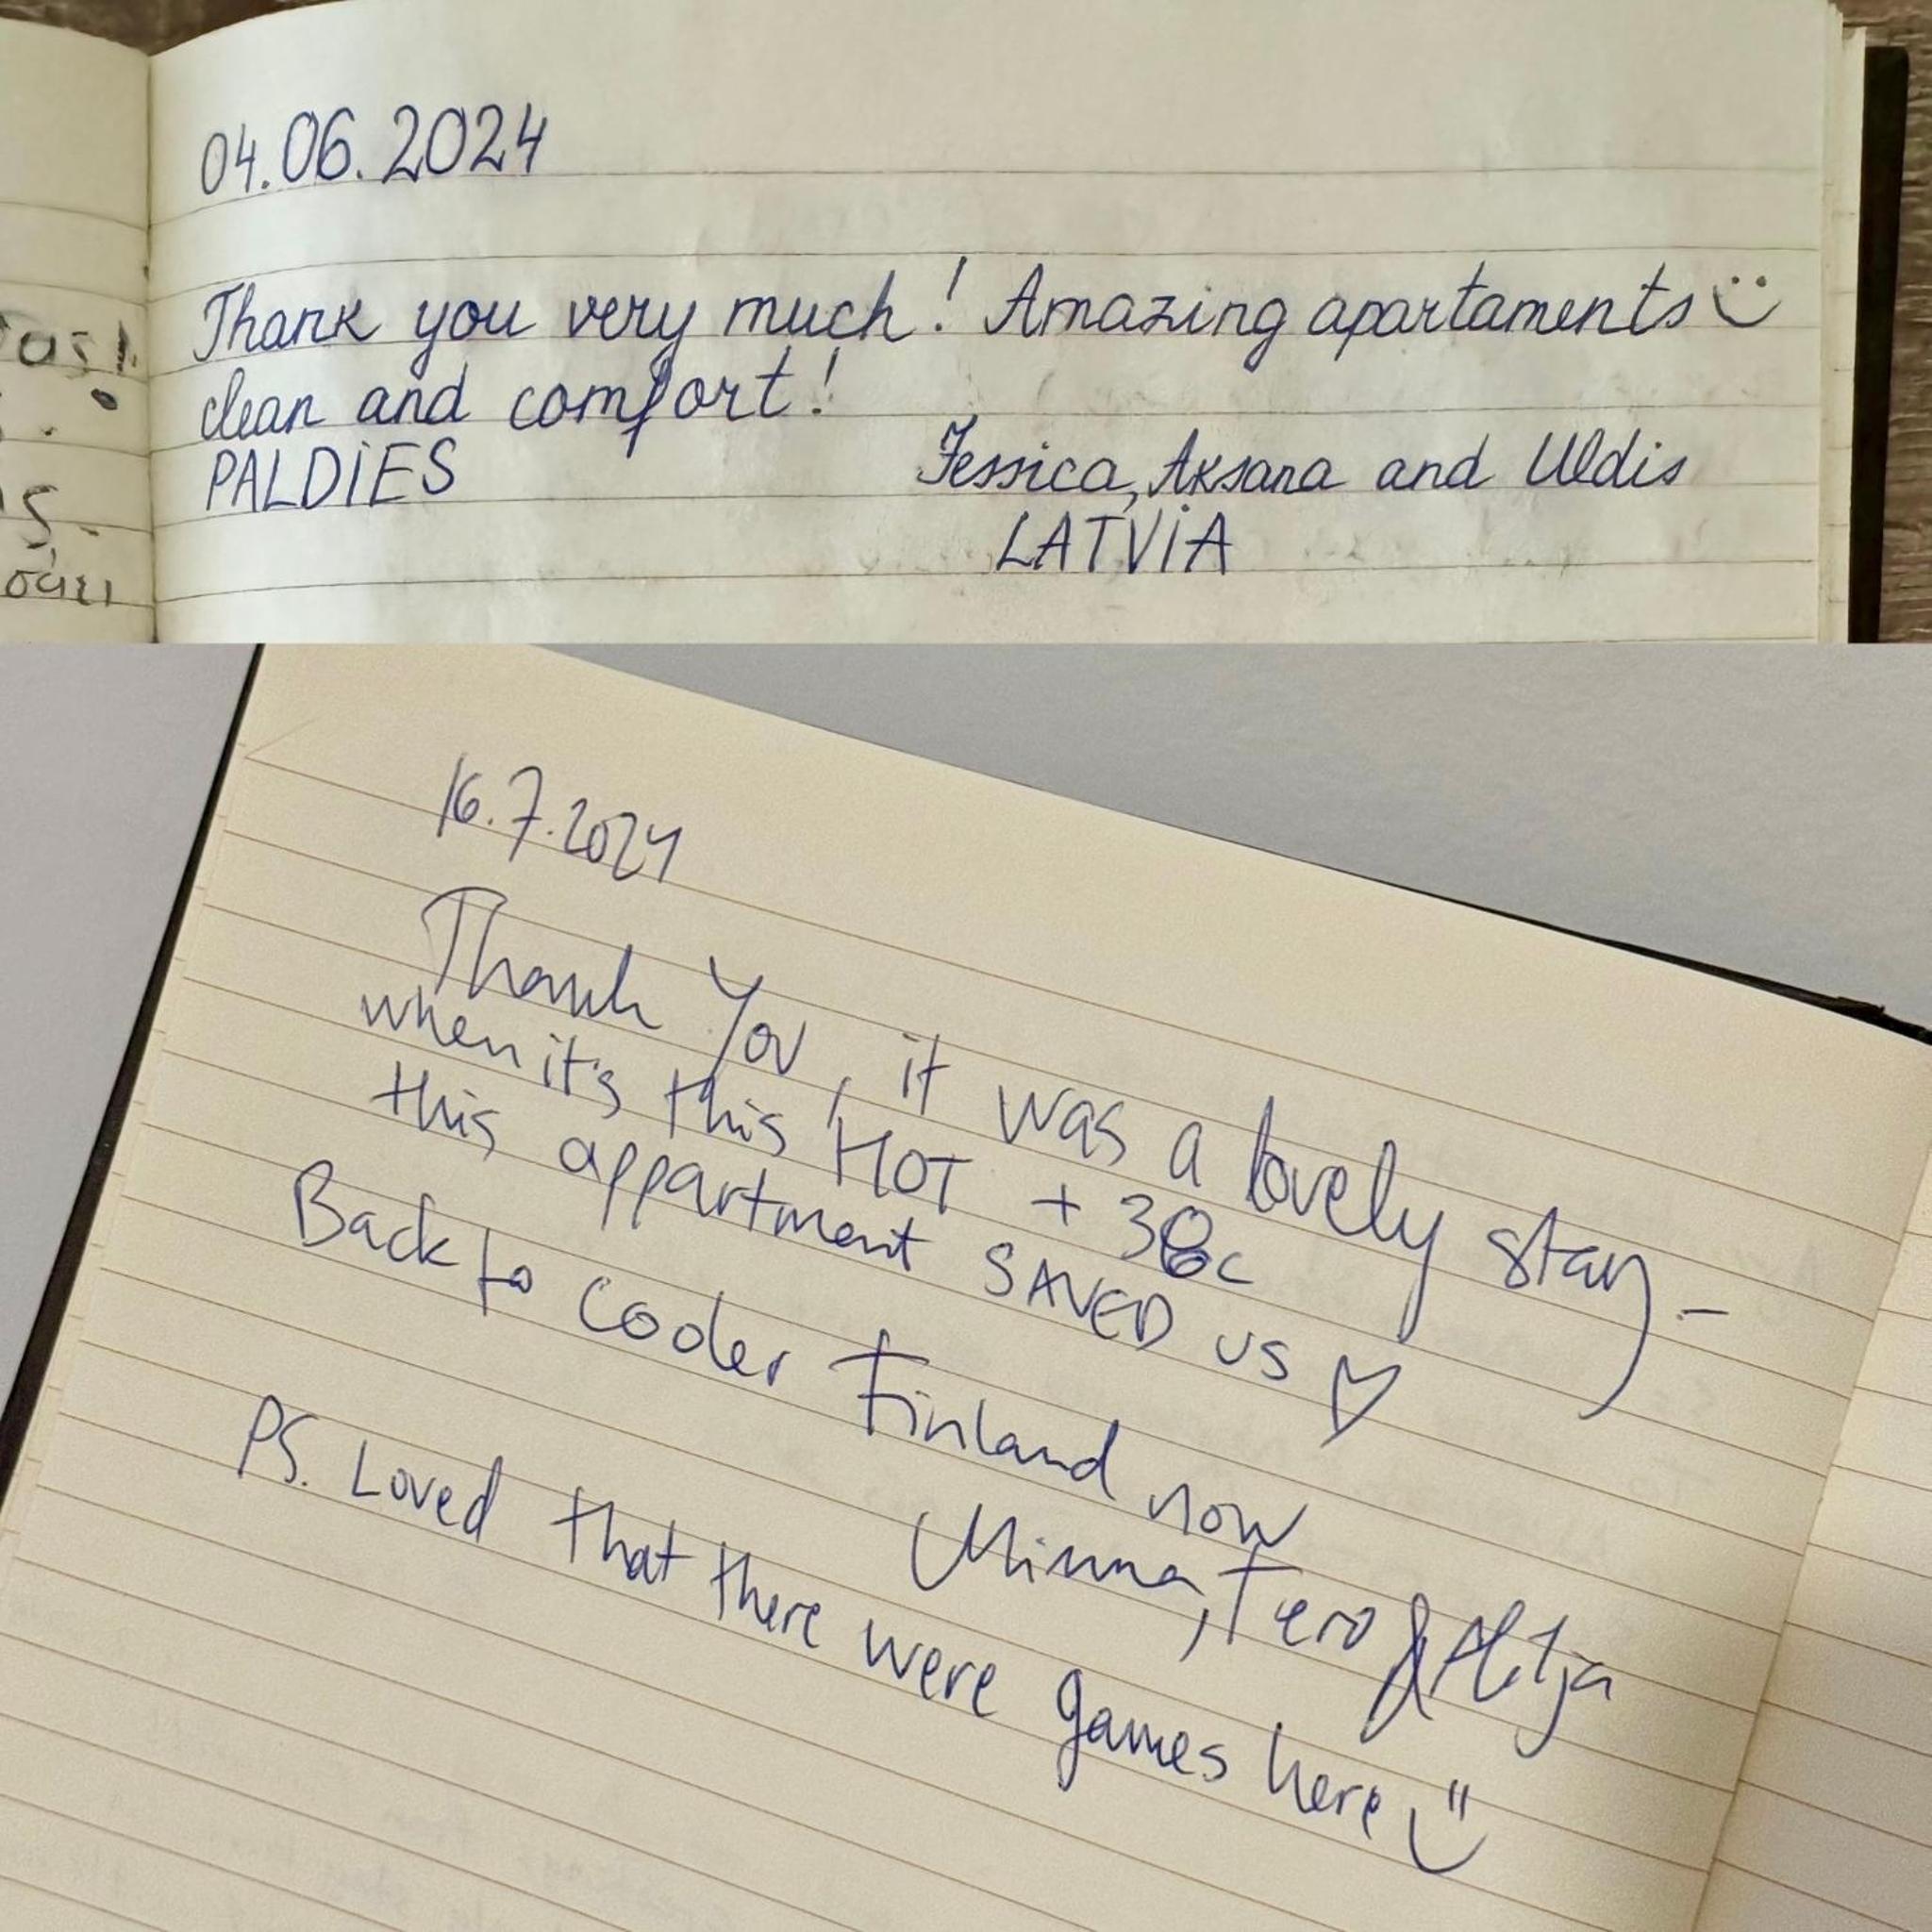 04.06.2024
Thank you very much! Amazing apartaments
clean and comfort!
PALDIES
Jessica, Aksana and Uldis
LATVIA
16.7.2024
Thank You, it was a lovely stay -
when it's this HOT + 38c
this appartment SAVED us ♡
Back to cooler Finland now
Minna, Tero &
PS. Loved that there were games here